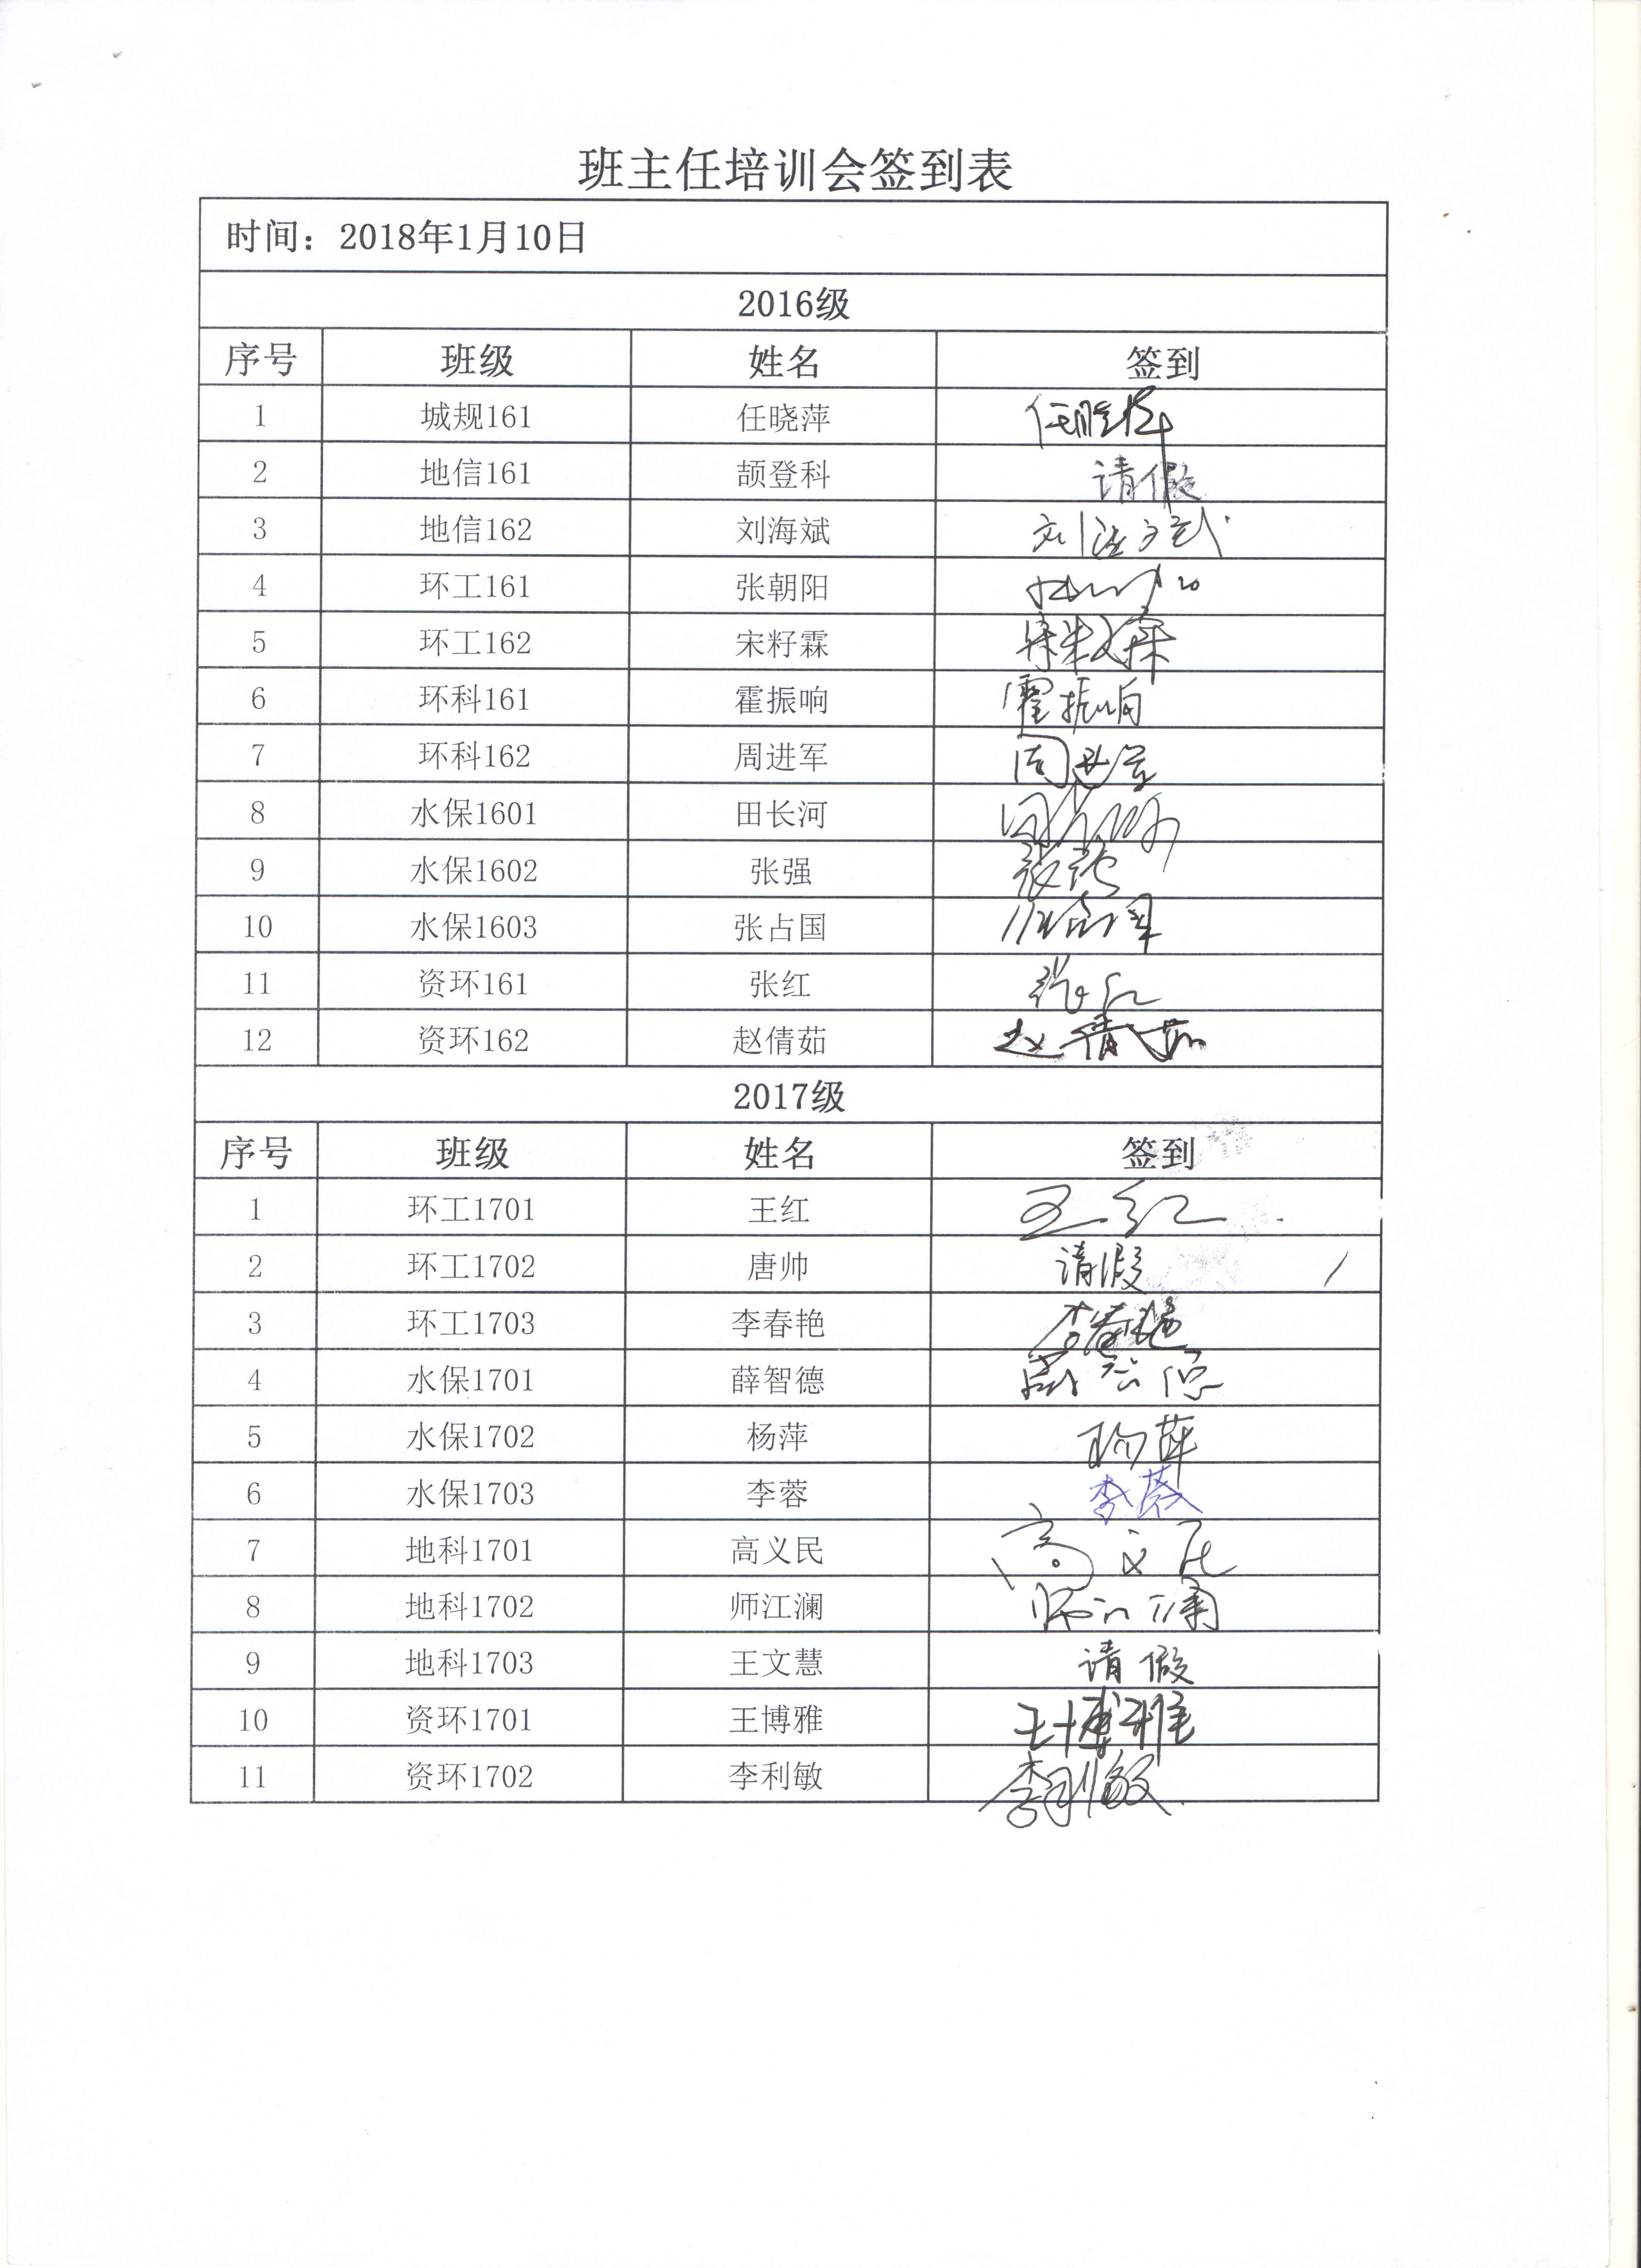 班主任培训会签到表
时间：2018年1月10日
2016级
序号 班级 姓名 签到
1 城规161 任晓萍 任晓萍
2 地信161 颉登科 请假
3 地信162 刘海斌 刘海斌
4 环工161 张朝阳
5 环工162 宋籽霖
6 环科161 霍振响 霍振响
7 环科162 周进军 周进军
8 水保1601 田长河 田长河
9 水保1602 张强 张强
10 水保1603 张占国
11 资环161 张红 张红
12 资环162 赵倩茹 赵倩茹
2017级
序号 班级 姓名 签到
1 环工1701 王红 王红
2 环工1702 唐帅 请假
3 环工1703 李春艳 李春艳
4 水保1701 薛智德
5 水保1702 杨萍 杨萍
6 水保1703 李蓉 李蓉
7 地科1701 高义民 高义民
8 地科1702 师江澜 师江澜
9 地科1703 王文慧 请假
10 资环1701 王博雅 王博雅
11 资环1702 李利敏 李利敏